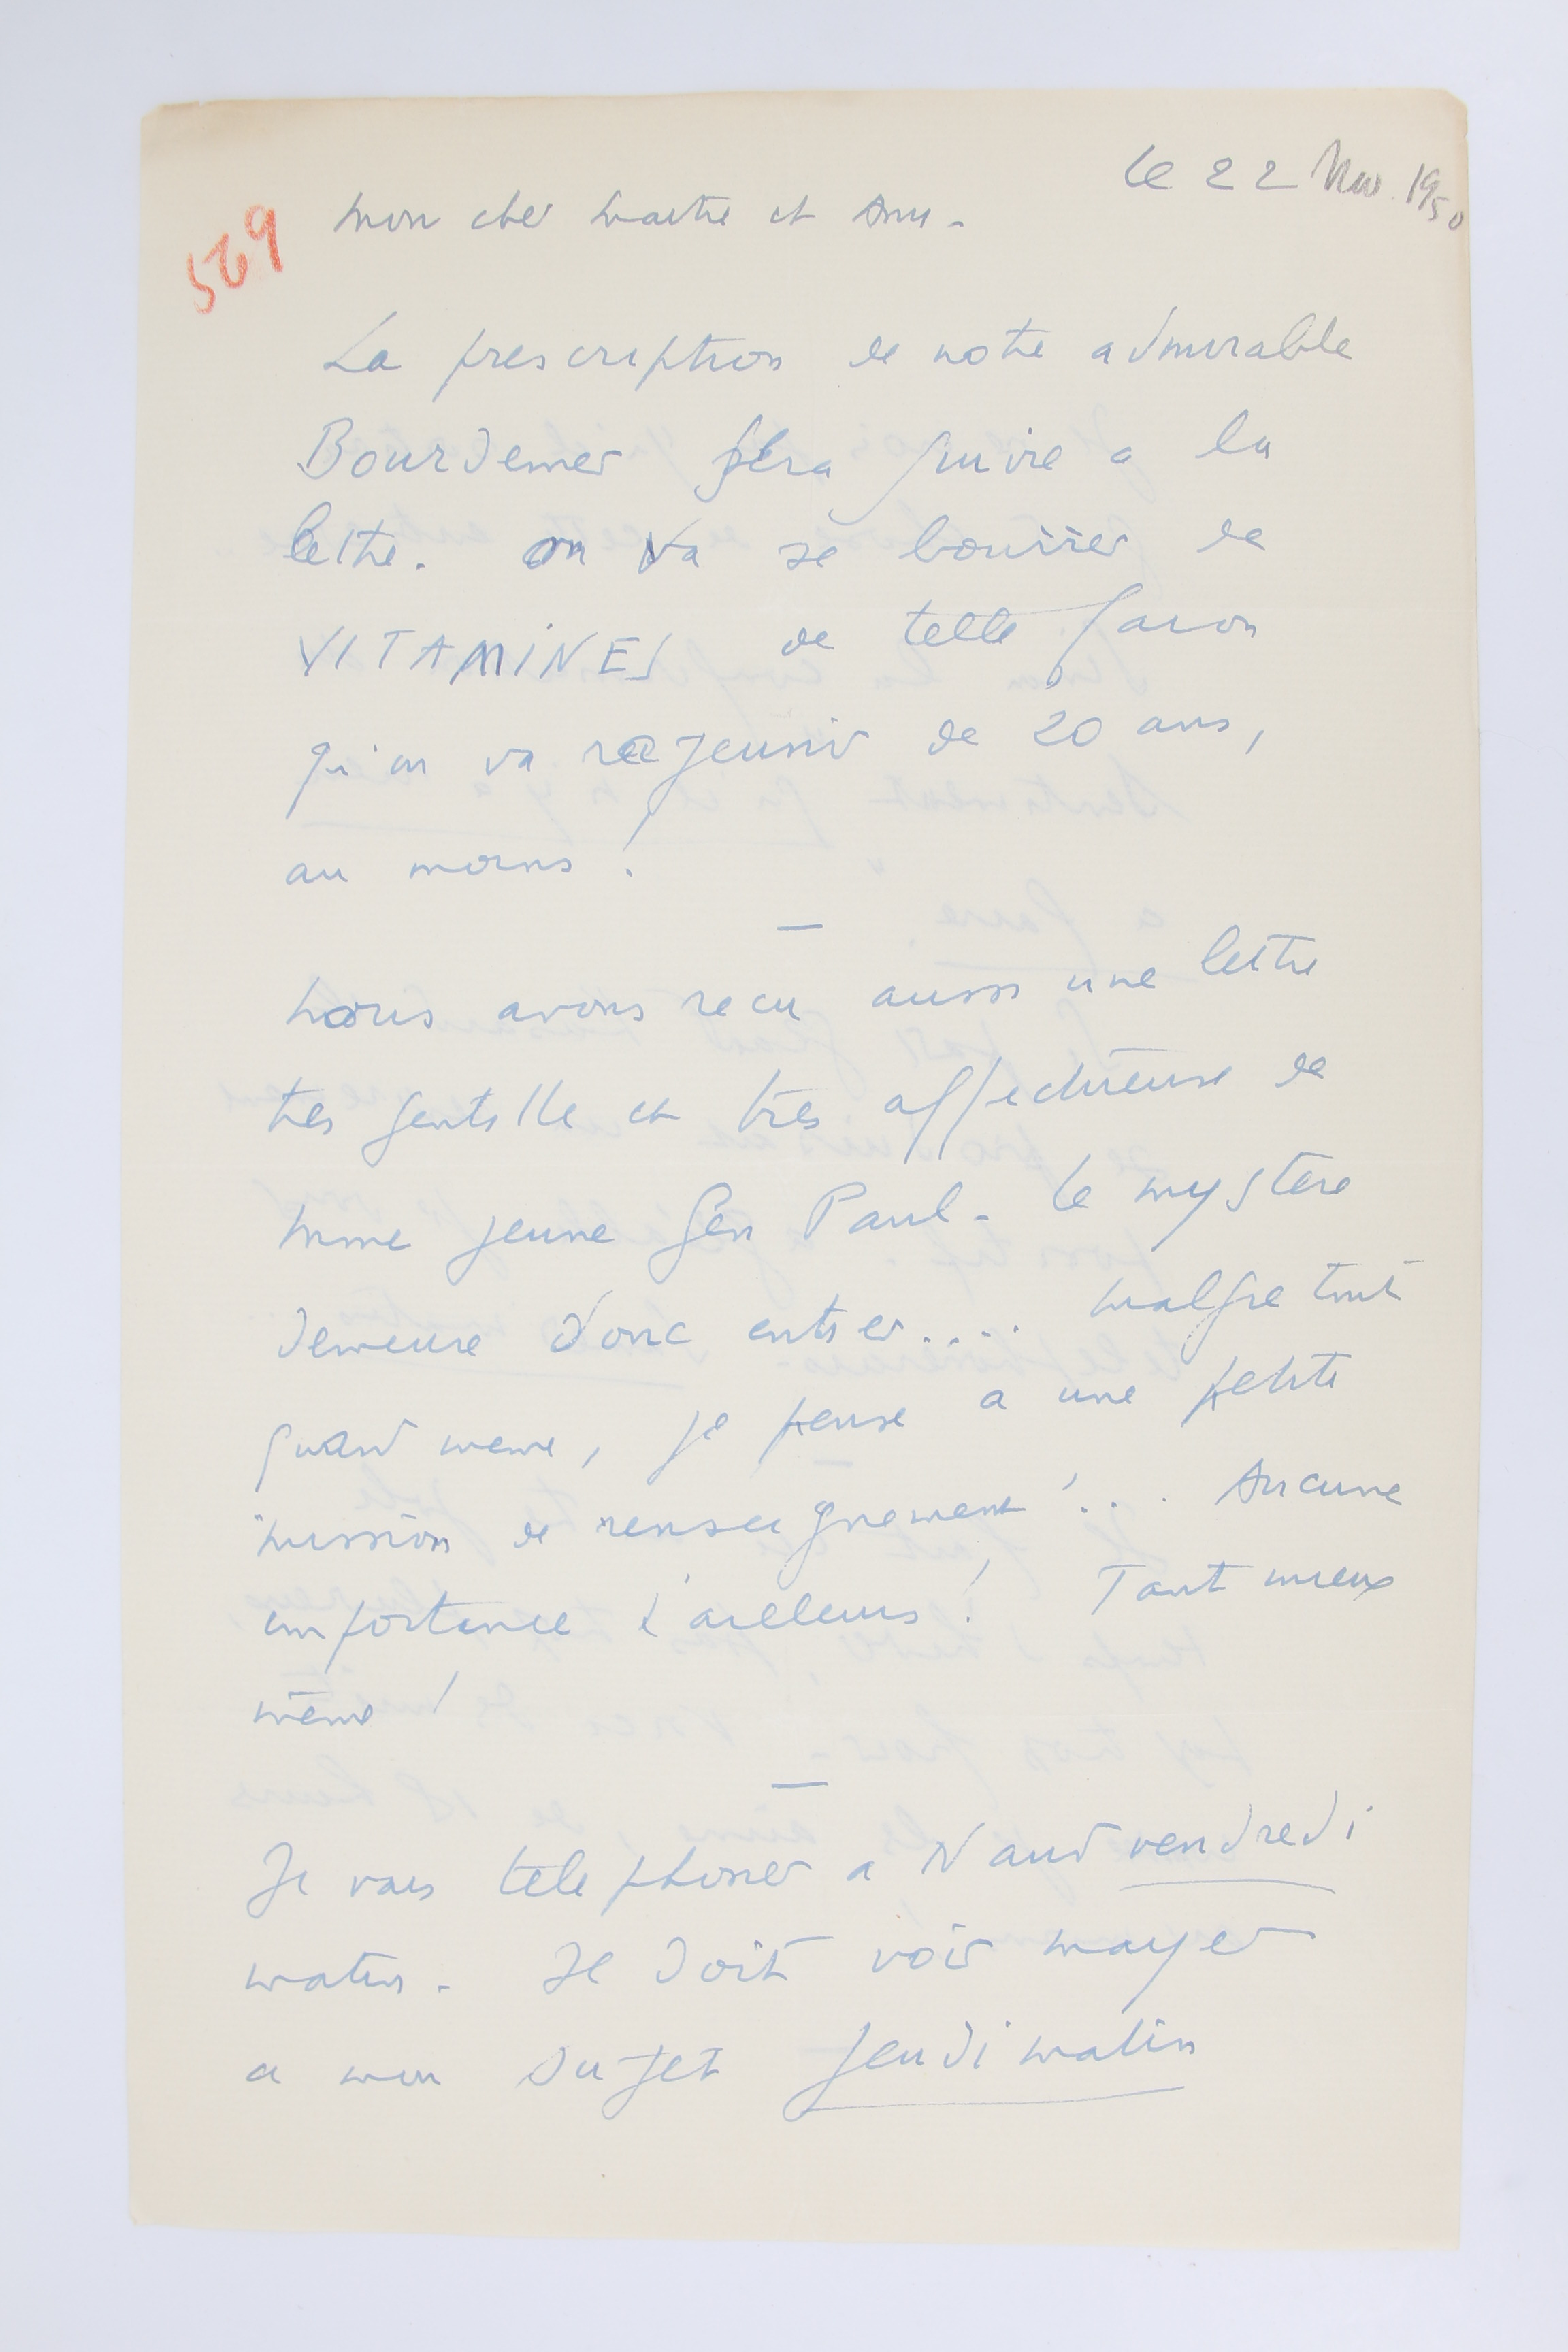 le 22 Nov. 1950
569
mon cher Maitre et Ami -
La prescription de notre admirable
Bourdemer sera suivie a la
lettre. on va se bourrer de
VITAMINES de telle facon
qu'on va rajeunir de 20 ans,
au moins !
—
Nous avons recu aussi une lettre
tres gentille et très affectueuse de
Mme jeune Gen Paul - le mystère
demeure donc entier.... malgre tout
quand meme, je pense a une petite
"mission de renseignement"... Aucune
importance d'ailleurs ! Tant mieux
même !
—
Je vais telephoner a Naud vendredi
matin. Il doit voir Mayer
a mon sujet jeudi matin